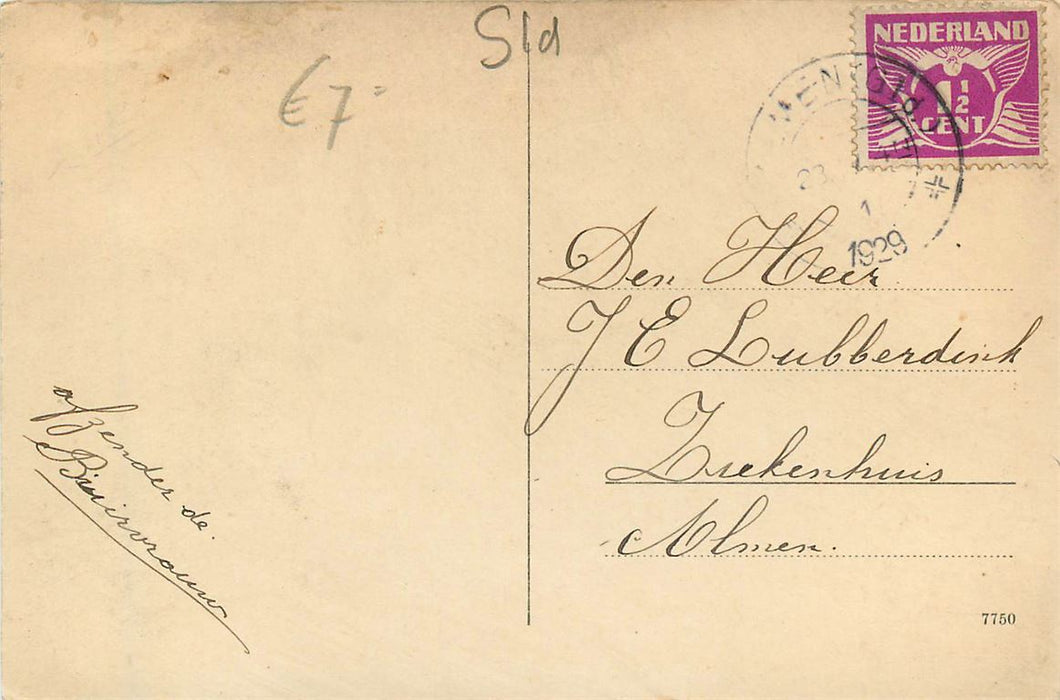 Sld
€ 7=
NEDERLAND
1½
CENT
1
1929
Den Heer
J E Lubberdink
Ziekenhuis
Almen.
afzender de.
Buurvrouw
7750